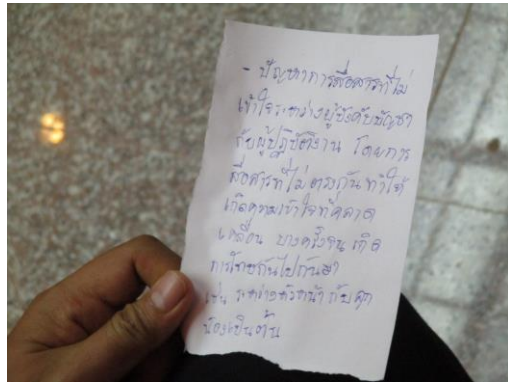 - ปัญหาการสื่อสารที่ไม่
เข้าใจระหว่างผู้บังคับบัญชา
กับผู้ปฏิบัติงาน โดยการ
สื่อสารที่ไม่ตรงกันทำให้
เกิดความเข้าใจที่คลาด
เคลื่อน บางครั้งจนเกิด
การโทษกันไปกันมา
เช่น ระหว่างหัวหน้ากับลูก
น้องเป็นต้น